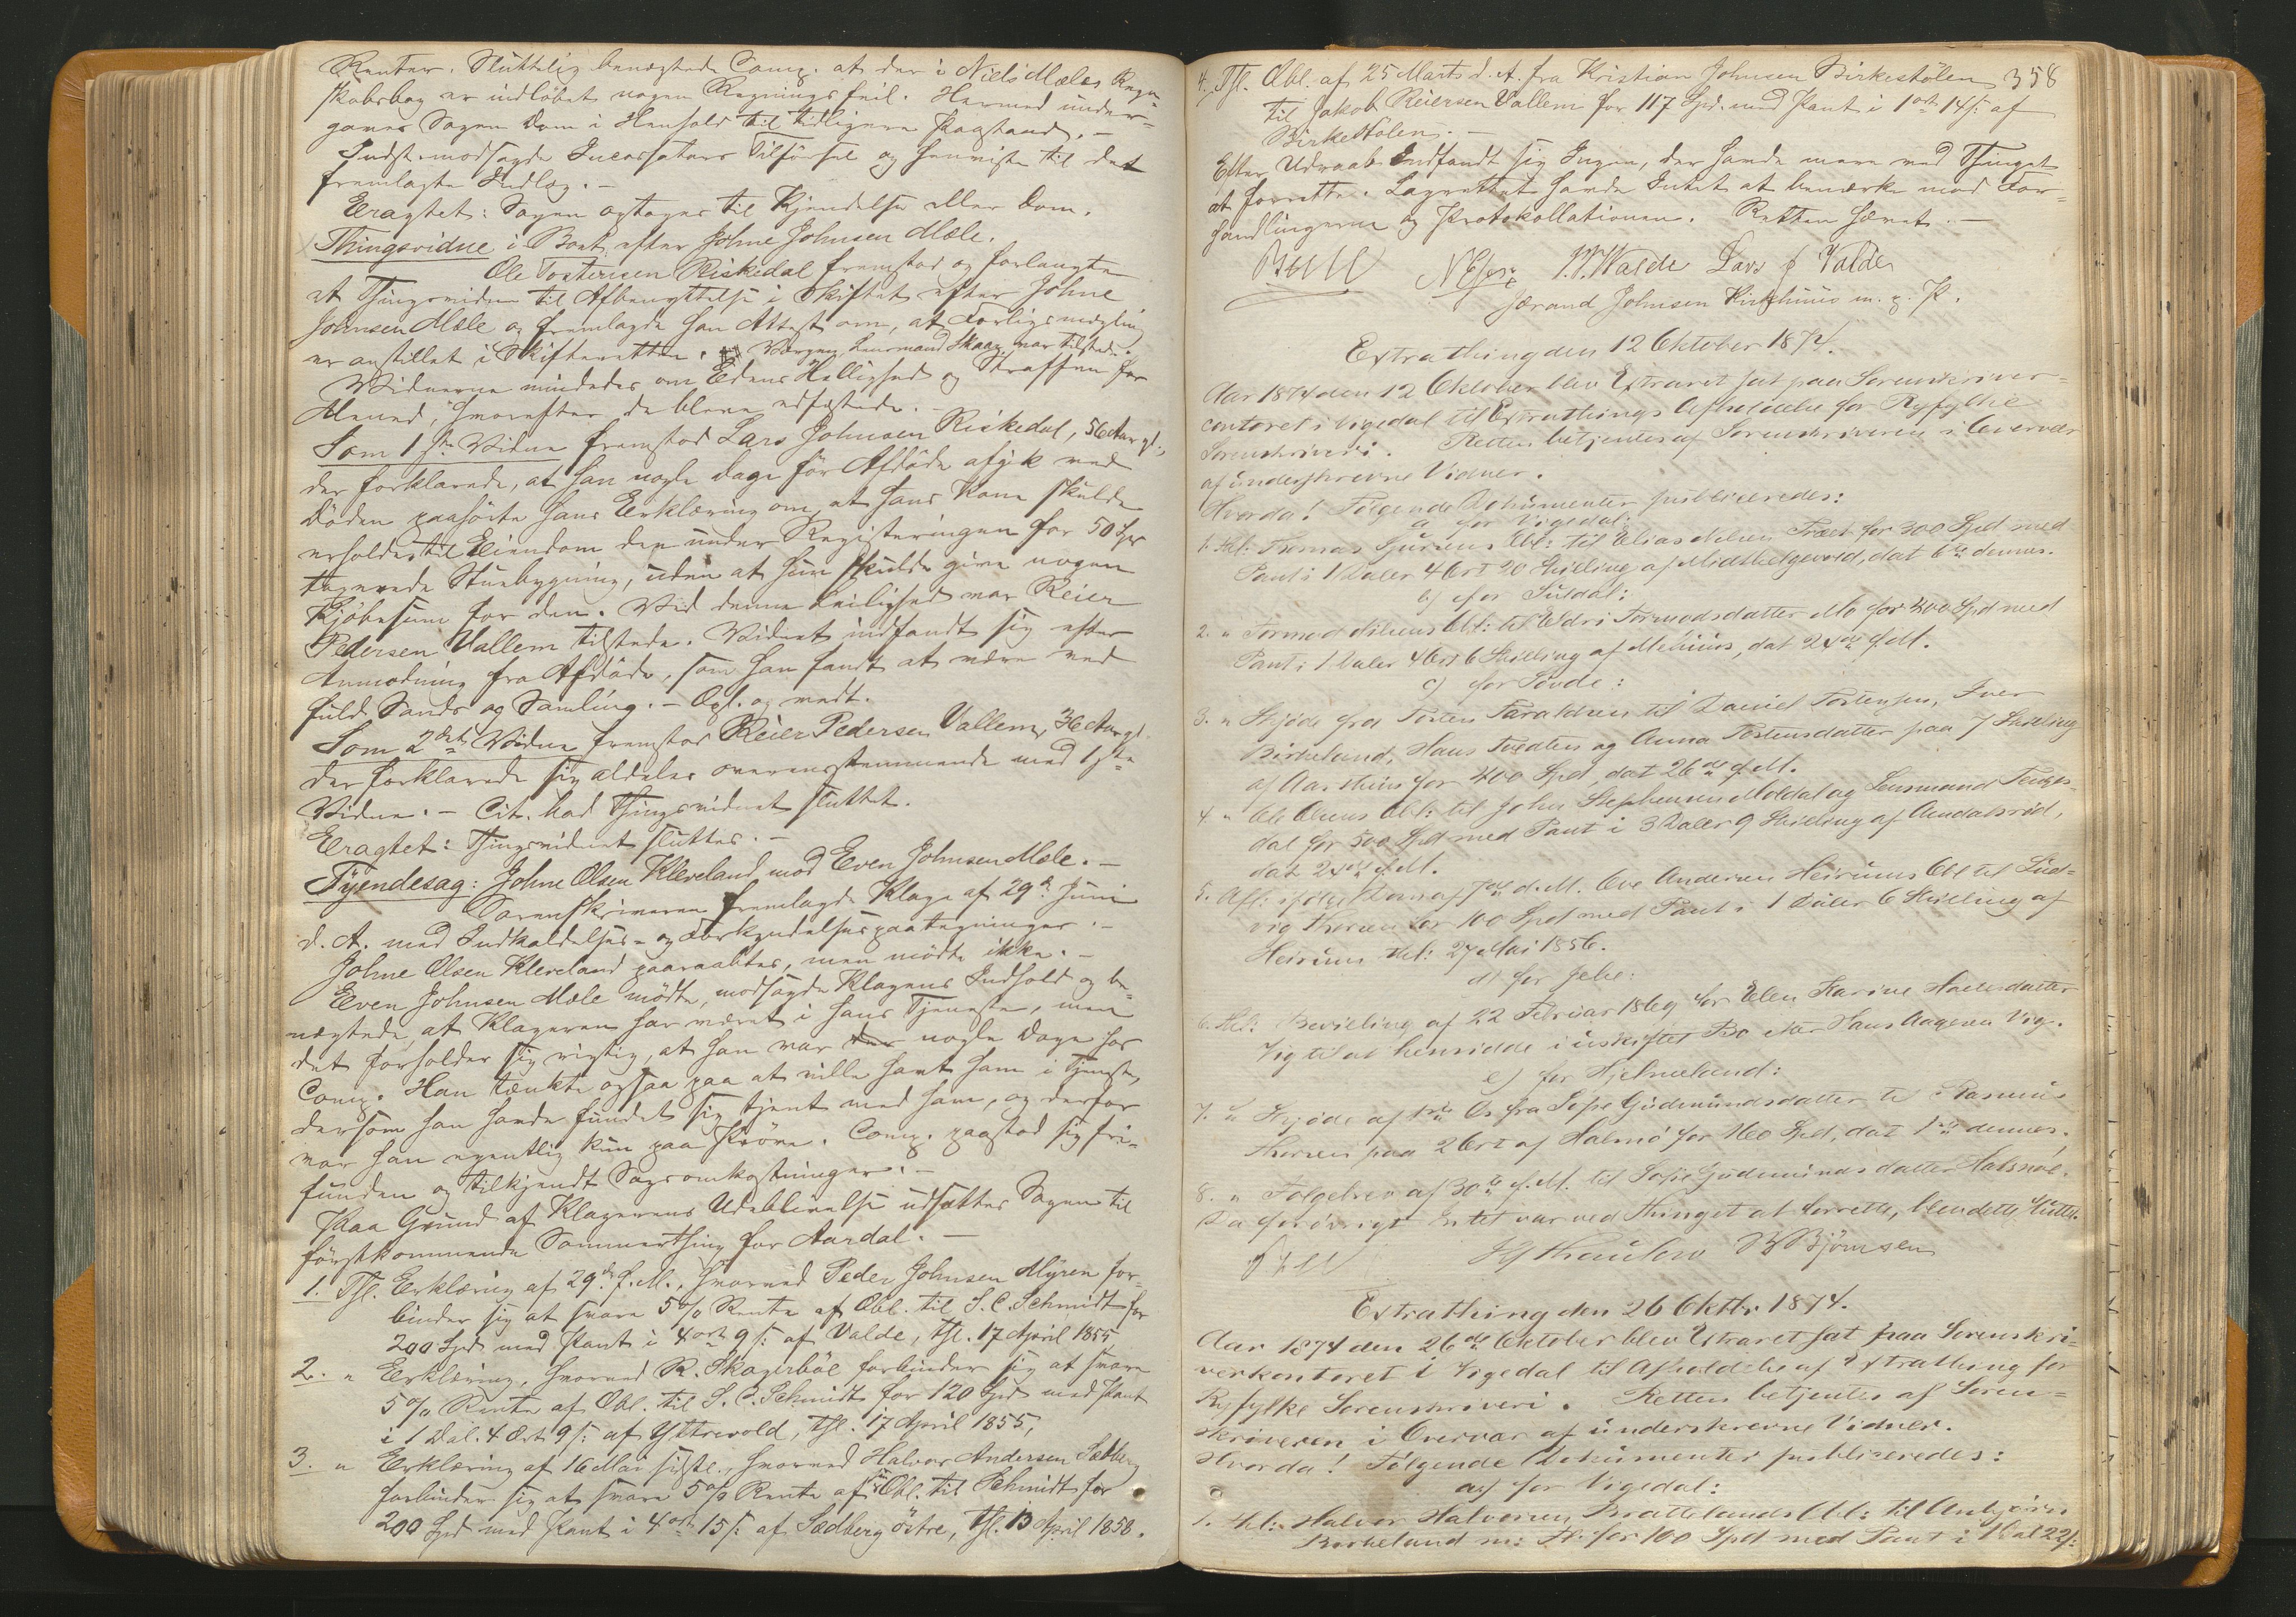 Renter. Sluttelig benægtede Comp. at der i Niels Mæles Regn-
skabsbog er indløbet nogen Regningsfeil. Hermed under-
gaves Sagen Dom i Henhold til tidligere Paastand. -
Indst. modsagde Incassators Tilførsel og henviste til det
fremlagte Indlæg. -
Eragtet: Sagen optages til Kjendelse eller Dom.
Thingsvidne i Boet efter Johne Johnsen Mæle.
Ole Tostensen Riskedal fremstod og forlangte
et Thingsvidne til Afbenyttelse i Skiftet efter Johne
Johnsen Mæle og fremlagde han Attest om, at Forligsmægling
er anstillet i Skifteretten. Værgen, Lensmand Skaar var tilstede.
Vidnerne mindedes om Edens Hellighed og Straffen for
Meneed, hvorefter de bleve edfæstede. -
Som 1ste Vidne fremstod Lars Johnsen Riskedal, 56 Aar gl.,
der forklarede, at han nogle Dage før Afdøde afgik ved
Døden paahørte hans Erklæring om, at hans Kone skulde
erholde til Eiendom den under Registeringen for 50 Spd
taxerede Stuebygning, uden at hun skulde give nogen
Kjøbesum for den. Ved denne Leilighed var Reier
Pedersen Vallem tilstede. Vidnet indfandt sig efter
Anmodning fra Afdøde, som han fandt at være ved
fuld Sands og Samling. - Opl. og vedt.
Som 2det Vidne fremstod Reier Pedersen Vallem, 36 Aar gl.
der forklarede sig aldeles overensstemmende med 1ste
Vidne. - Cit. bad Thingsvidnet sluttet.
Eragtet: Thingsvidnet sluttes. -
Tyendesag: Johne Olsen Kleveland mod Even Johnsen Mæle. -
Sorenskriveren fremlagde Klage af 29de Juni
d. A. med Indkaldelses- og Forkyndelsespaategninger. -
Johne Olsen Kleveland paaraabtes, men mødte ikke. -
Even Johnsen Mæle mødte, modsagde Klagens Indhold og be-
nægtede, at Klageren har været i hans Tjeneste, men
det forholder sig rigtig, at han var nogle Dage hos
Comp. Han tænkte ogsaa paa at ville havt ham i Tjeneste,
dersom han havde fundet sig tjent med ham, og derfor
var han egentlig kun paa Prøve. Comp. paastod sig fri-
funden og tilkjendt Sagsomkostninger. -
Paa Grund af Klagerens Udeblivelse udsattes Sagen til
førstkommende Sommerthing for Aardal. -
1. Thl. Erklæring af 29de f. M., hvorved Peder Johnsen Myren for-
binder sig at svare 5 % Rente af Obl. til S. C. Schmidt for
200 Spd med Pant i 4 ort 9 s: af Valde, thl. 17 April 1855
2. " Erklæring, hvorved R. Skagerbøe forbinder sig at svare
5 % Rente af Obl. til S. C. Schmidt for 120 Spd med Pant
i 1 Dal. 4 Ort 9 s: af Yttrevold, thl. 17 April 1855,
3. " Erklæring af 16 Mai sidstl., hvorved Halvor Andersen Sedberg
forbinder sig at svare 5 % Rente af sin Obl. til Schmidt for
200 Spd med Pant i 4 ort 15 s: af Sædberg østre, thl. 13 April 1858.
358
4. Thl. Obl. af 25 Marts d. A. fra Kristian Johnsen Birkestølen
til Jakob Reiersen Vallem for 117 Spd. med Pant i 1 ort 14 s: af
Birkestølen. -
Efter Udraab Indfandt sig Ingen, der havde mere ved Thinget
at forrette. Lagrettet havde Intet at bemærke mod For-
handlingerne og Protokollationen. Retten hævet. -
Lars Valde
Johnsen m. p. P.
Extrathing den 12 Oktober 1874.
Aar 1874 den 12 Oktober blev Extraret sat paa Sorenskriver-
contoret i Vigedal til Extrathings Afholdelse for Ryfylke
Sorenskriveri. Retten betjentes af Sorenskriveren i Overvær
af underskrevne Vidner.
Hvorda! Følgende Dokumenter publiceredes:
a for Vigedal:
1. thl: Thomas Obl: til Elias Nilsen Træet for 300 Spd med
Pant i 1 Daler 4 Ort 20 Skilling af dat 6te dennes.
b) for Suldal:
2. " Tormod Nilsens Obl: til Eldri Tormodsdatter Mo for 400 Spd med
Pant i 1 Daler 4 Ort 6 Skilling af Mehuus, dat 24de f. M.
c) for Sovde:
3. " Skjøde fra Torsten Taraldsen til Daniel Torstensen, Iver
Birkeland, Hans Tvedten og Anna Torstensdatter paa 7 Skilling
af for 400 Spd, dat 26de f. M.
4 " Ole Olsens Obl: til John Stephensen Moldal og Lensmand
dal for 500 Spd med Pant i 3 Daler 9 Skilling af
dat 24de f. M.
5. Afl: ifølge Dom af 7de d. M. Ove Andersen Heirums Obl til Lud-
vig for 100 Spd med Pant i 1 Daler 6 Skilling af
Heirum thl: 27 Mai 1856.
d) for Jelse:
6. thl: Bevilling af 22 Februar 1869 for Elen Karine
Vig til at hensidde i uskiftet Bo efter Hans Aagesen Vig.
e) for Hjelmeland:
7. " Skjøde af fra Sofie Gudmundsdatter til Rasmus
paa 2 Ort af Halsnø for 160 Spd, dat 1ste dennes,
8. " Følgebrev af 30te f. M. til Sofie Gudmundsdatter Halsnøe.
Da forøvrigt Intet var ved Thinget at forrette, blev dette sluttet.
Bjørnsen
Extrathing den 26 Oktbr 1874.
Aar 1874 den 26de Oktober blev Extraret sat paa Sorenskri-
verkontoret i Vigedal til Afholdelse af Extrathing for
Ryfylke Sorenskriveri. Retten betjentes af Soren-
skriveren i Overvær af underskrevne Vidner.
Hvorda! Følgende Dokumenter publiceredes:
a) for Vigedal:
1. thl: Halvor Halvorsen Brattelands Obl: til
Birkeland m: Fl: for 100 Spd med Pant i 1 Dal 22 s: